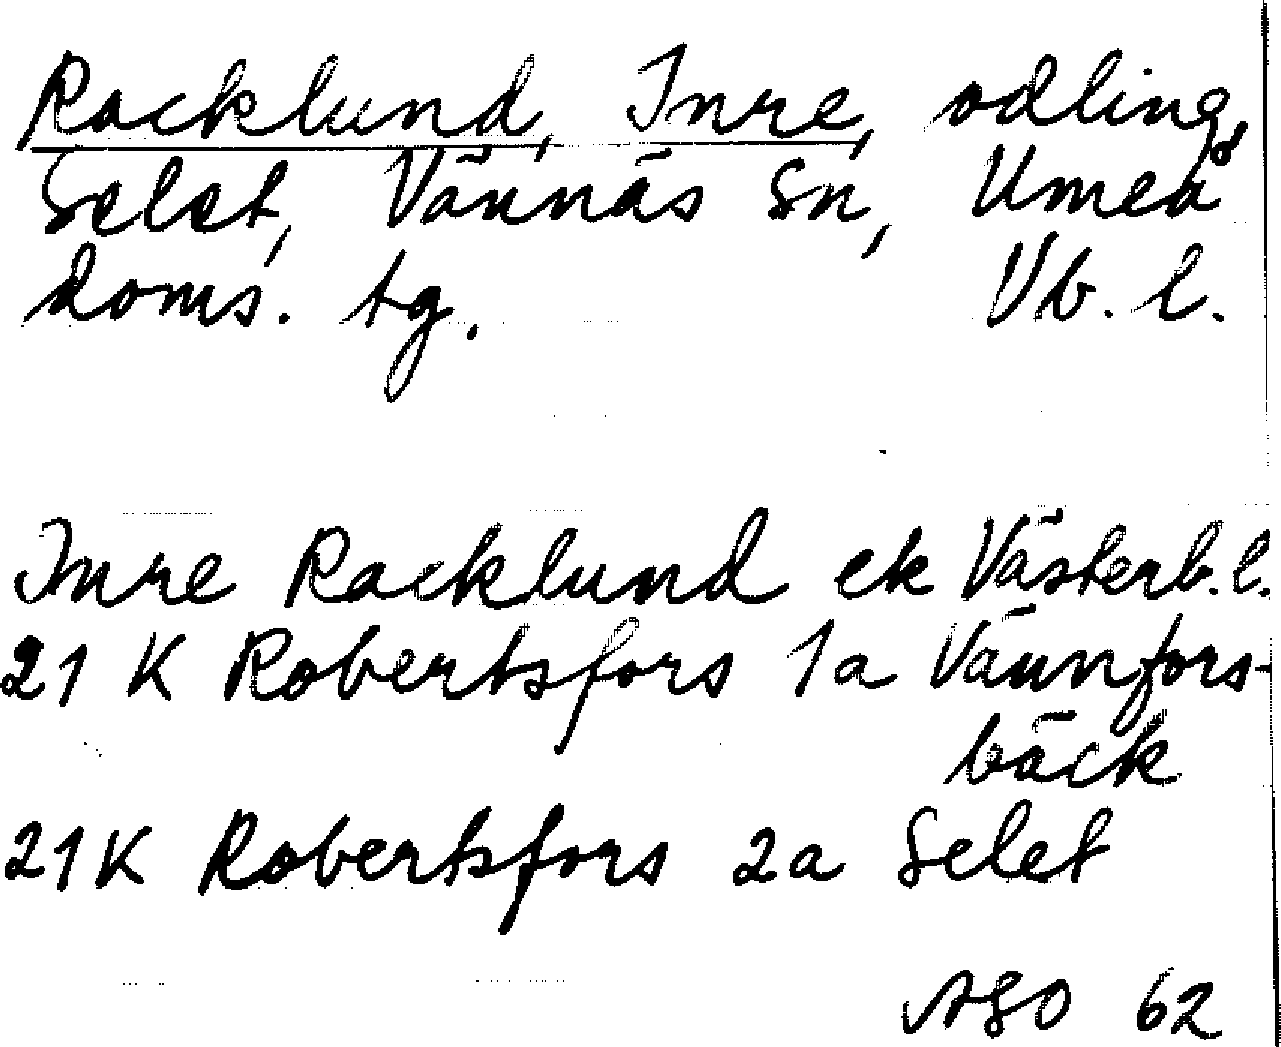 Racklund, Inre, odling,
Selet, Vännäs Sn, Umeå
doms. tg. Vb. l.
Inre Racklund ek Västerb. l.
21 K Robertsfors 1a Vännfors-
bäck
21K Robertsfors 2a Selet
ASO 62